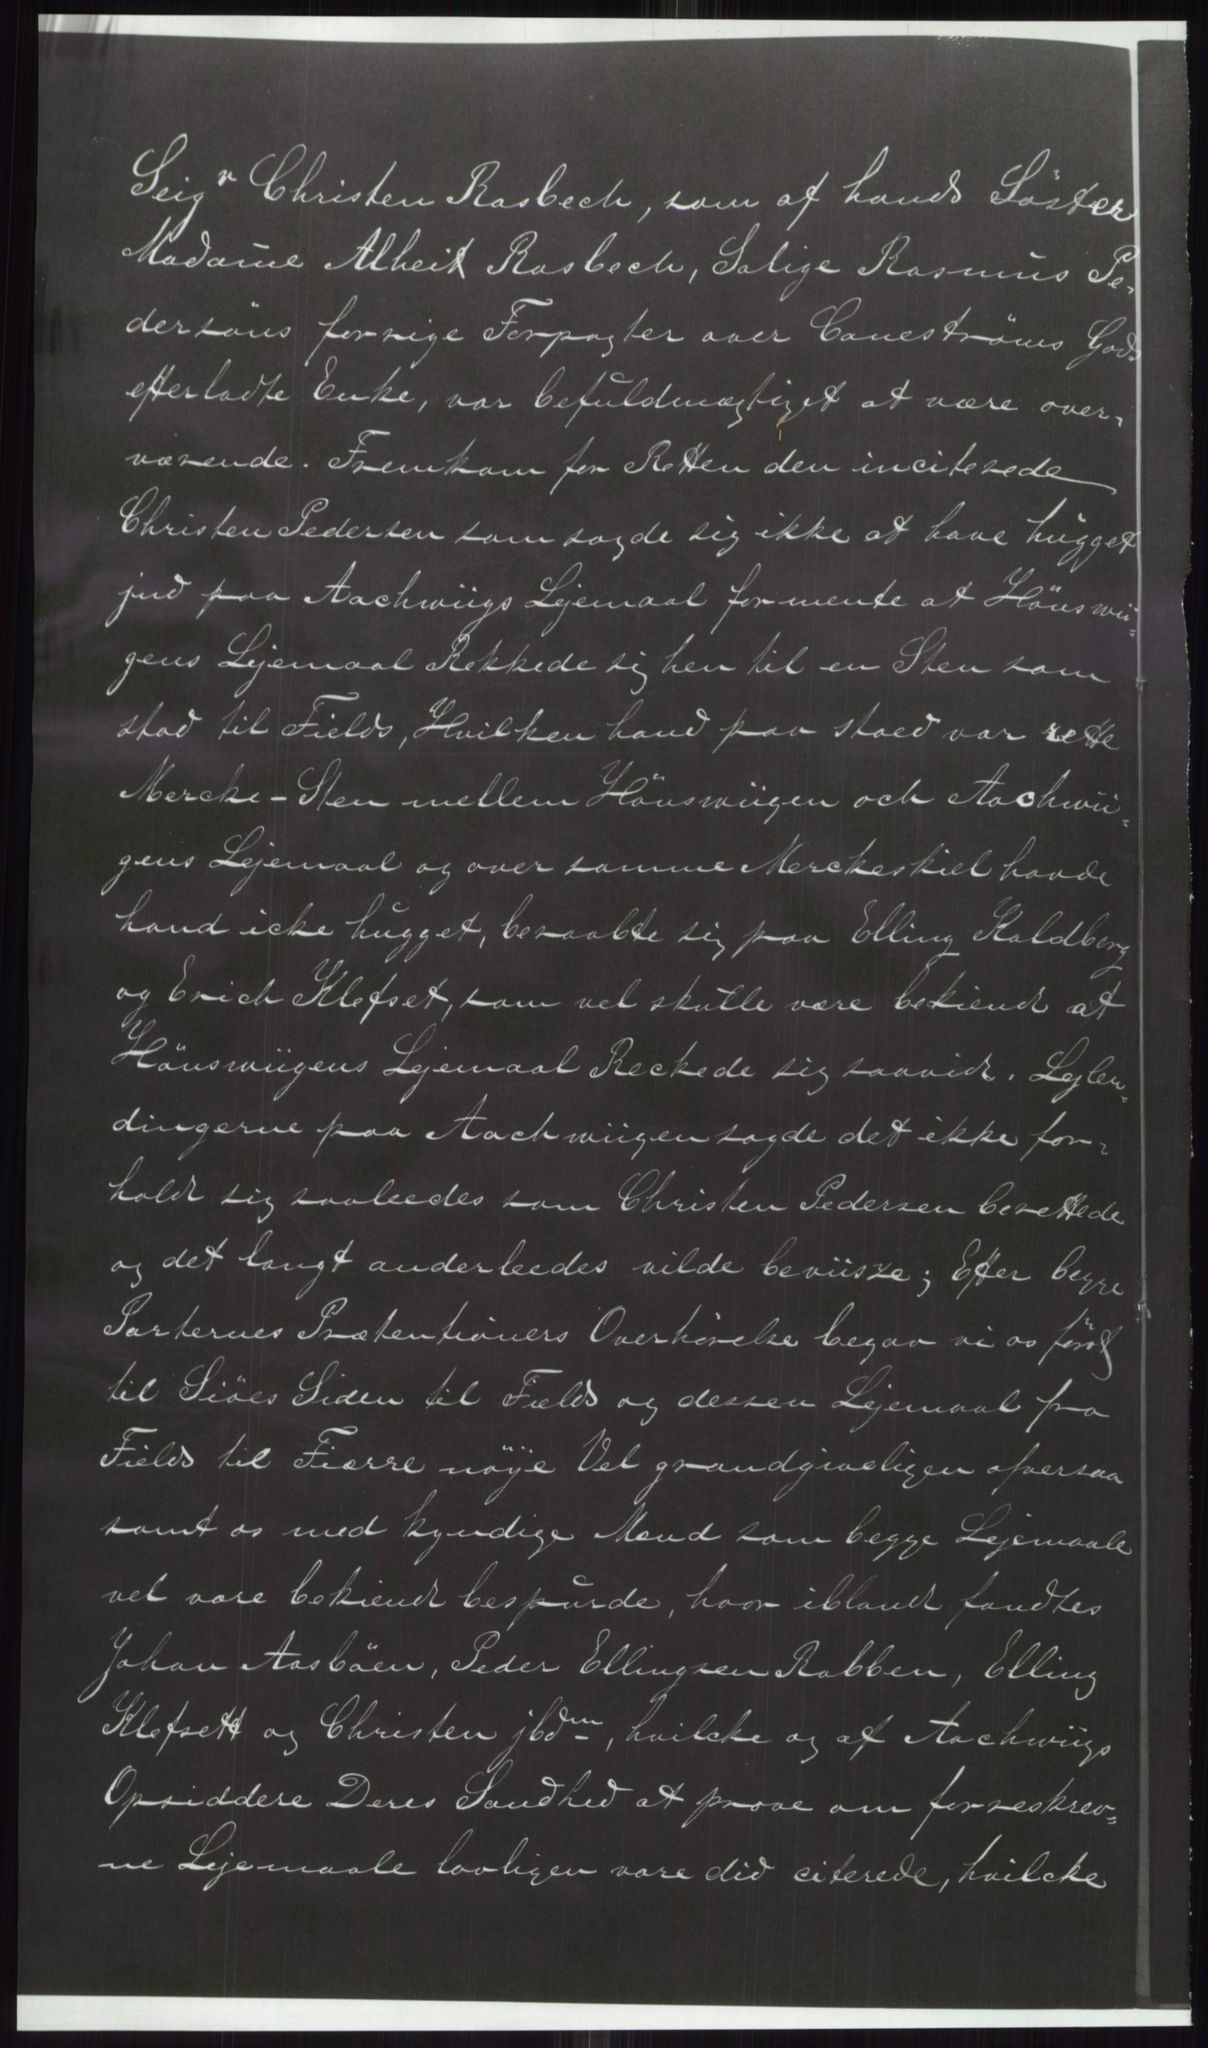 Seigr Christen Rasbech, som af hands Söster
Madame Alheit Rasbech, Salige Rasmus Pe-
dersöns forrige Forpagter over Caneströms Gods
efterladte Enke, var befuldmægtiget at være over-
værende. Fremkom for Retten den inciterede
Christen Pedersen som sagde sig ikke at have hugget
ind paa Aachwiigs Lejemaal formente at Hönswii-
gens Lejemaal Rekkede sig hen til en Sten som
stod til Fields, Hvilken hand paa stoed var rette
Mercke-Sten mellem Hönswiigen och Aachwii-
gens Lejemaal og over samme Merckeskiel havde
hand icke hugget, beraabte sig paa Elling Kaldberg
og Erich Klefset, som vel skulle være bekiendt at
Hönswiigens Lejemaal Reckede sig saavidt. Leylen-
dingerne paa Aachwiigen sagde det ikke for-
holdt sig saaleedes som Christen Pedersen berettede
og det langt anderleedes vilde beviisse; Efter begge
Parternes Prætentioners Overhörelse begav vi os först
til Siöes Siden til Fields og dessen Lejemaal fra
Fields til Fiærre nöye Vel grandgiveligen ofversaa
samt os med kyndige Mænd som begge Lejemaale
vel vare bekiendt bespurde, hvor iblandt fandtes
Johan Aasböen, Peder Ellingsen Rabben, Elling
Klefsett og Christen jbdm, hvilcke og af Aachwiigs
Opsiddere Deres Sandhed at prove om forreskrev-
ne Lejemaale lovligen vare did citerede, hvilcke